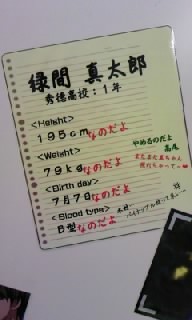 緑間 真太郎
秀徳高校：1年
<Height>
195cmなのだよ
<Weight>
79kgなのだよ
やめるのだよ
高尾
<Birth day>
7月7日なのだよ
<Blood type>
B型なのだよ